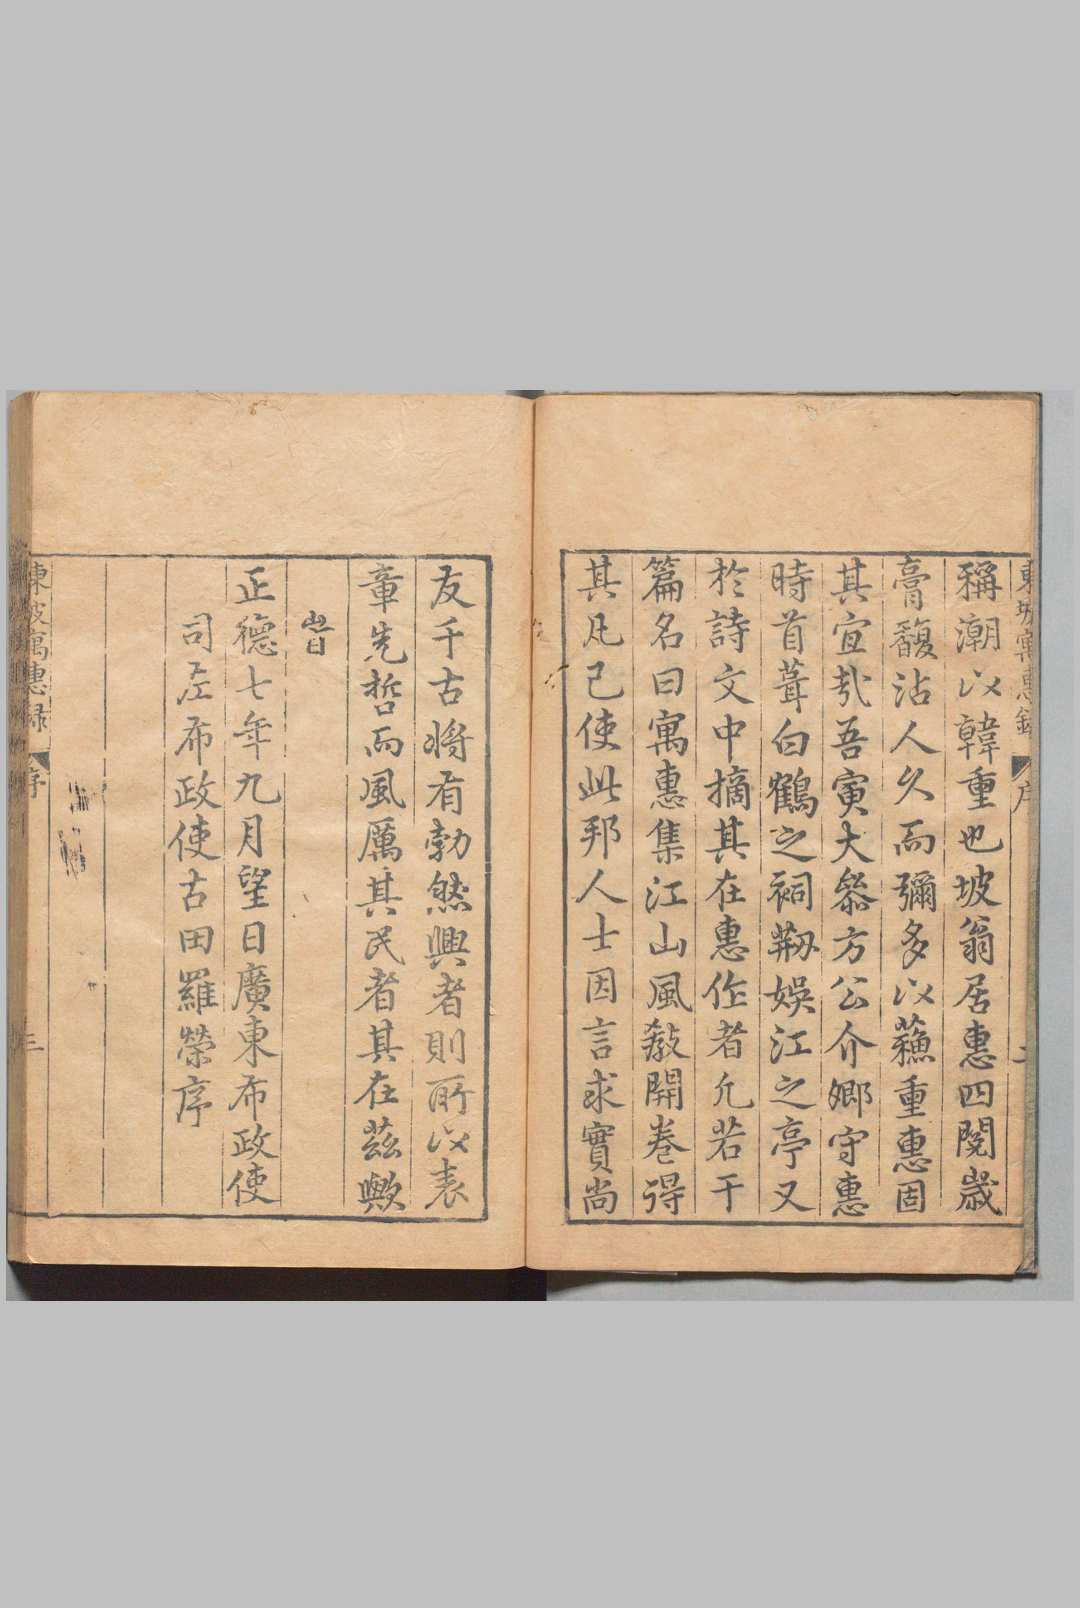 東坡寓惠錄 序 二
稱潮以韓重也坡翁居惠四閱歲
膏馥沾人久而彌多以蘓重惠固
其宜㢤吾寅大叅方公介卿守惠
時首葺白鶴之祠剏娛江之亭又
於詩文中摘其在惠作者凢若干
篇名曰寓惠集江山風敎開卷得
其凡已使此邦人士因言求實尚
友千古將有勃然興者則所以表
章先哲而風厲其民者其在茲歟
旹
正德七年九月望日廣東布政使
司左布政使古田羅榮序
東坡寓惠録 序 三